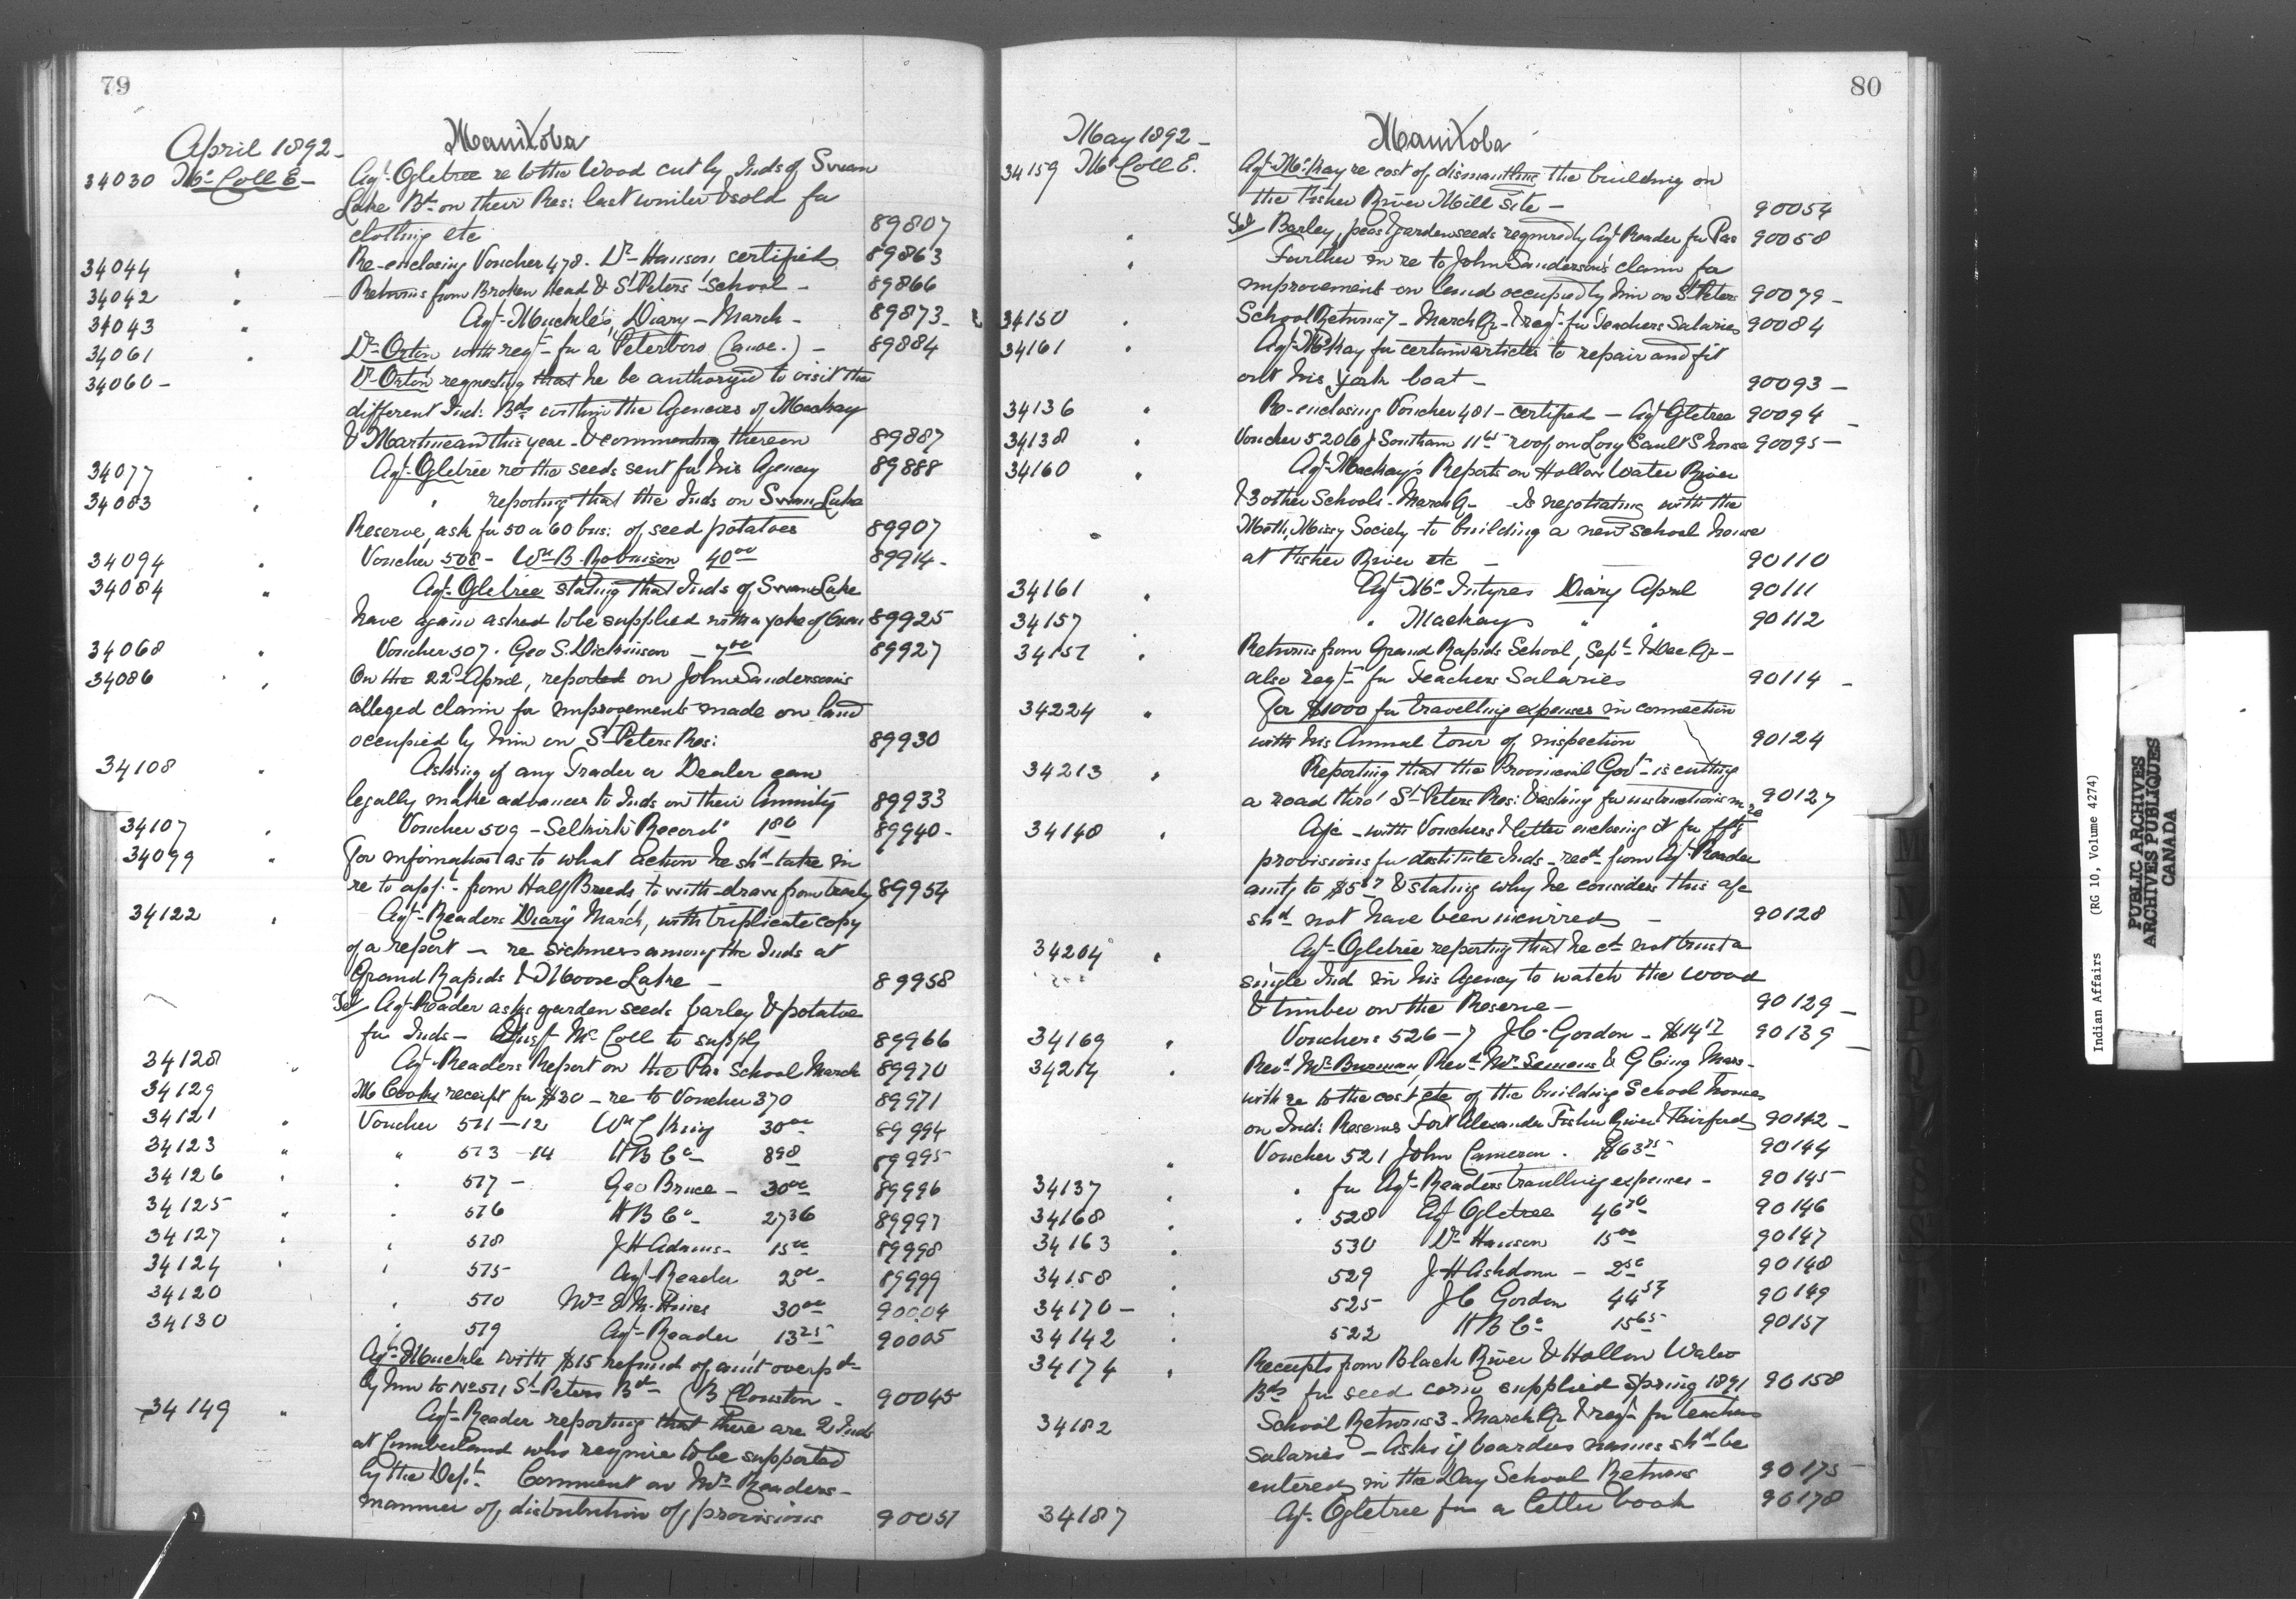 79
April 1892 -
Manitoba
34030 McColl E - Agt Ogletree re to the Wood cut by Inds of Swan
Lake Bd on their Res: last winter & sold for
clothing etc 89807
34044 " Re-enclosing Voucher 478. Dr Hanson certified 89863
34042 " Returns from Broken Head & St Peters School - 89866
34043 " Agt Muckle's Diary - March - 89873 -
34061 " Dr Orton with reqt for a Peterboro Canoe.) - 89884
34060 - Dr Orton requesting that he be authorized to visit the
different Ind: Bds within the Agencies of Mackay
& Martineau this year - & commenting thereon 89887
34077 " Agt Ogletree re the seeds sent for his Agency 89888
34083 " " reporting that the Inds on Swan Lake
Reserve, ask for 50 or 60 bus: of seed potatoes 89907
34094 " Voucher 508 - Wm B. Robinson 40 00 89914 -
34084 " Agt Ogletree stating that Inds of Swan Lake
have again asked to be supplied with a yoke of Oxen 89925
34068 " Voucher 507. Geo S. Dickinson - 7 00 89927
34086 " On the 22d April, reported on John Sandersons
alleged claim for improvements made on land
occupied by him on St Peters Res: 89930
34108 " Asking if any Trader or Dealer can
legally make advances to Inds on their Annuity 89933
34107 " Voucher 509 - Selkirk "Record" 1 80 89940 -
34099 " For information as to what action he shd take in
re to appt from Half Breeds, to with-draw from treaty 89954
34122 " Agt Readers Diary March, with triplicate copy
of a report - re sickness among the Inds at
Grand Rapids & Moose Lake - 89958
Tel Agt Reader asks garden seeds barley & potatoe
for Inds - McColl to supply 89966
34128 " Agt Readers Report on the Pas School March 89970
34129 M Cooks receipt for $30 - re to Voucher 370 89971
34121 " Voucher 511-12 Wm C King 30 00 89994
34123 " " 513-14 H B Co 8 98 89995
34126 " " 517 - Geo Bruce - 30 00 89996
34125 " " 516 H B Co - 27 36 89997
34127 " " 518 J H Adams - 15 00 89998
34124 " " 515 Agt Reader 2 00 89999
34120 " 510 30 00 90004
34130 " 519 Agt Reader 13 25 90005
Agt Muckle with $15 refund of amt overpd
by him to No 511 St Peters Bd (B Clouston - 90045
34149 " Agt Reader reporting that there are 2 Inds
at Cumberland who require to be supported
by the Dept. Comment on Mr Readers -
manner of distribution of provisions 90051
80
May 1892 -
Manitoba
34159 McColl E. Agt McKay re cost of dismantling the building on
the Fisher River Mill Site - 90054
" Tel Barley, peas & garden seeds required by Agt Reader for Pas 90058
" Further in re to John Sanderson's claim for
improvement on land occupied by him on St Peters 90079 -
34150 " School Returns 7 - March Qr - & reqt for Teachers Salaries 90084
34161 " Agt McKay for certain articles to repair and fit
out his York boat - 90093 -
34136 " Re-enclosing Voucher 481 - certified - Agt Ogletree 90094 -
34138 " Voucher 520 (6) Southam 11 65 roof on Long Sault S. house 90095 -
34160 " Agt Mackay's Reports on Hollow Water River
& 3 other Schools - March Qr - Is negotiating with the
Meth; Missy Society to building a new School house
at Fisher River etc - 90110
34161 " Agt McIntyres Diary April 90111
34157 " " Mackays " " 90112
34151 " Returns from Grand Rapids School, Sept & Dec Qr -
also reqt for Teachers Salaries 90114 -
34224 " For $1000 for travelling expenses in connection
with his Annual tour of inspection 90124
34213 " Reporting that the Provincial Govt is cutting
a road thro' St Peters Res: & asking for instructions in re 90127
34140 " A/c - with Vouchers & letter enclosing it for
provisions for destitute Inds - recd from Agt Reader
amtg to $5 & stating why he considers this a/c
shd not have been incurred - 90128
34204 " Agt Ogletree reporting that he cd not trust a
single Ind in his Agency to watch the wood
& timber on the Reserve - 90129 -
34169 " Vouchers 526-7 J C Gordon - $14 17 90139 -
34214 " Revd Mr Burman, Revd Mr Semens & G Cing Mars -
with re to the cost etc of the building School houses
on Ind: Reserves Fort Alexander Fisher River & Fairford 90142 -
" Voucher 521 John Cameron. $63 75 90144
34137 " " for Agt Readers travelling expenses - 90145
34168 " " 528 Agt Ogletree 46 90146
34163 " 530 Dr Hanson 15 00 90147
34158 " 529 J H Ashdown - 2 50 90148
34170 - " 525 J C Gordon 44 57 90149
34142 " 522 H B Co 15 65 90157
34174 " Receipts from Black River & Hollow Water
Bds for seed corn supplied Spring 1891 90158
34182 School Returns 3 - March Qr & reqt for teachers
salaries - Asks if boarders names shd be
entered in the Day School Returns 90175
34187 Agt Ogletree for a letter book 90178
Indian Affairs (RG 10, Volume 4274)
PUBLIC ARCHIVES
ARCHIVES PUBLIQUES
CANADA